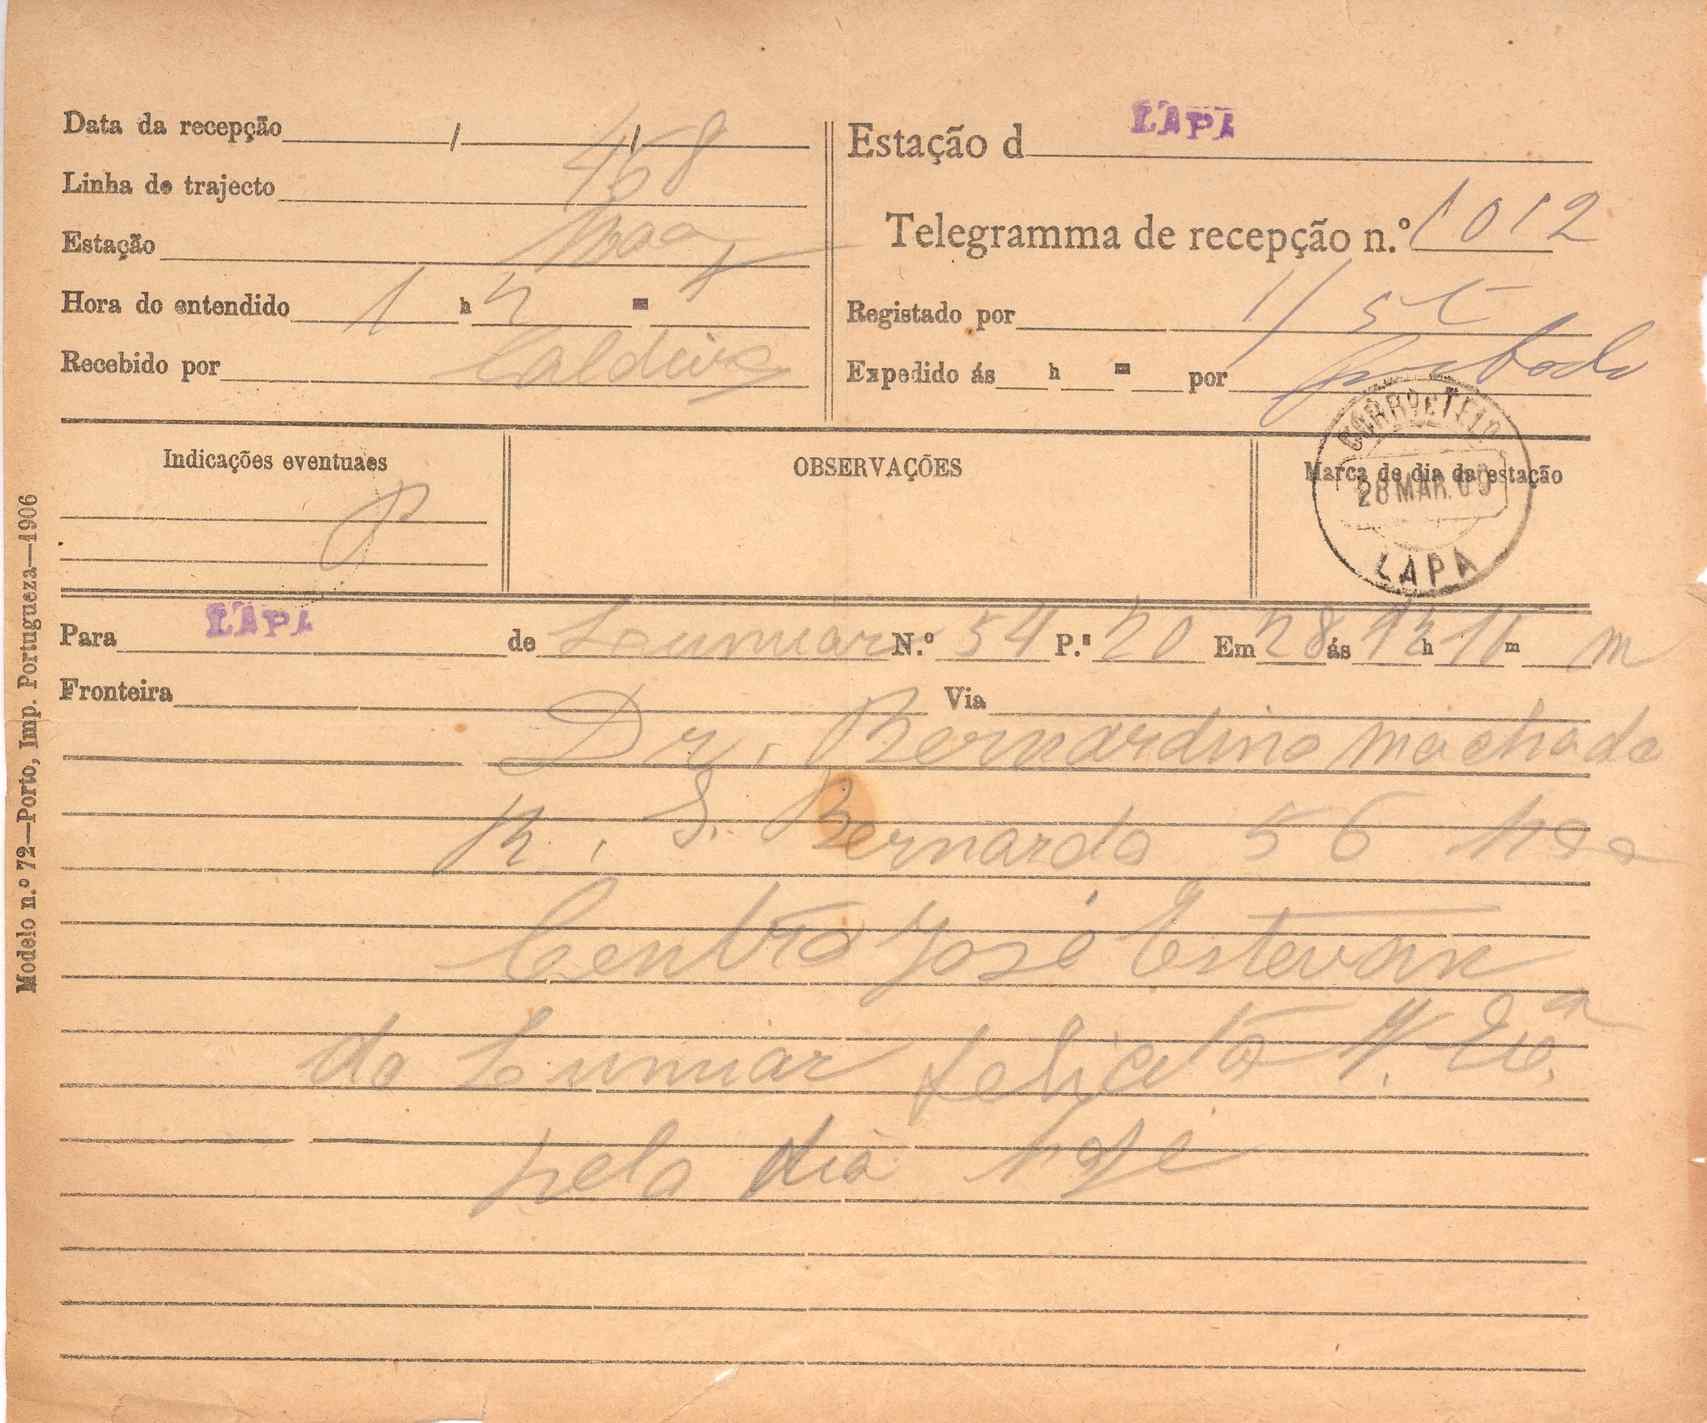 Data da recepção / /
Linha de trajecto 468
Estação Lxa
Hora do entendido 1 h 2 m t
Recebido por Caldeira
Estação d LAPA
Telegramma de recepção n.º 1012
Registado por
Expedido ás h m por
Indicações eventuaes
P
OBSERVAÇÕES
Marca de dia da estação
CORRO E TELO
28 MAR. 09
LAPA
Para LAPA de Lumiar N.º 54 P.as 20 Em 28 ás 12 h 16 m m
Fronteira Via
Dr. Bernardino Machado
R. S. Bernardo 56 Lxa
Centro José Estevam
do Lumiar felicita V. Exª.
pelo dia hoje
Modelo n.º 72—Porto, Imp. Portugueza—1906